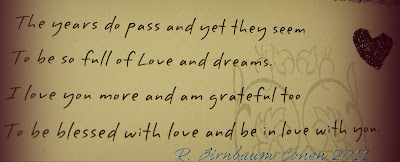 The years do pass and yet they seem
To be so full of Love and dreams.
I love you more and am grateful too
To be blessed with love and be in love with you.
R. Birnbaum Cohen 2011